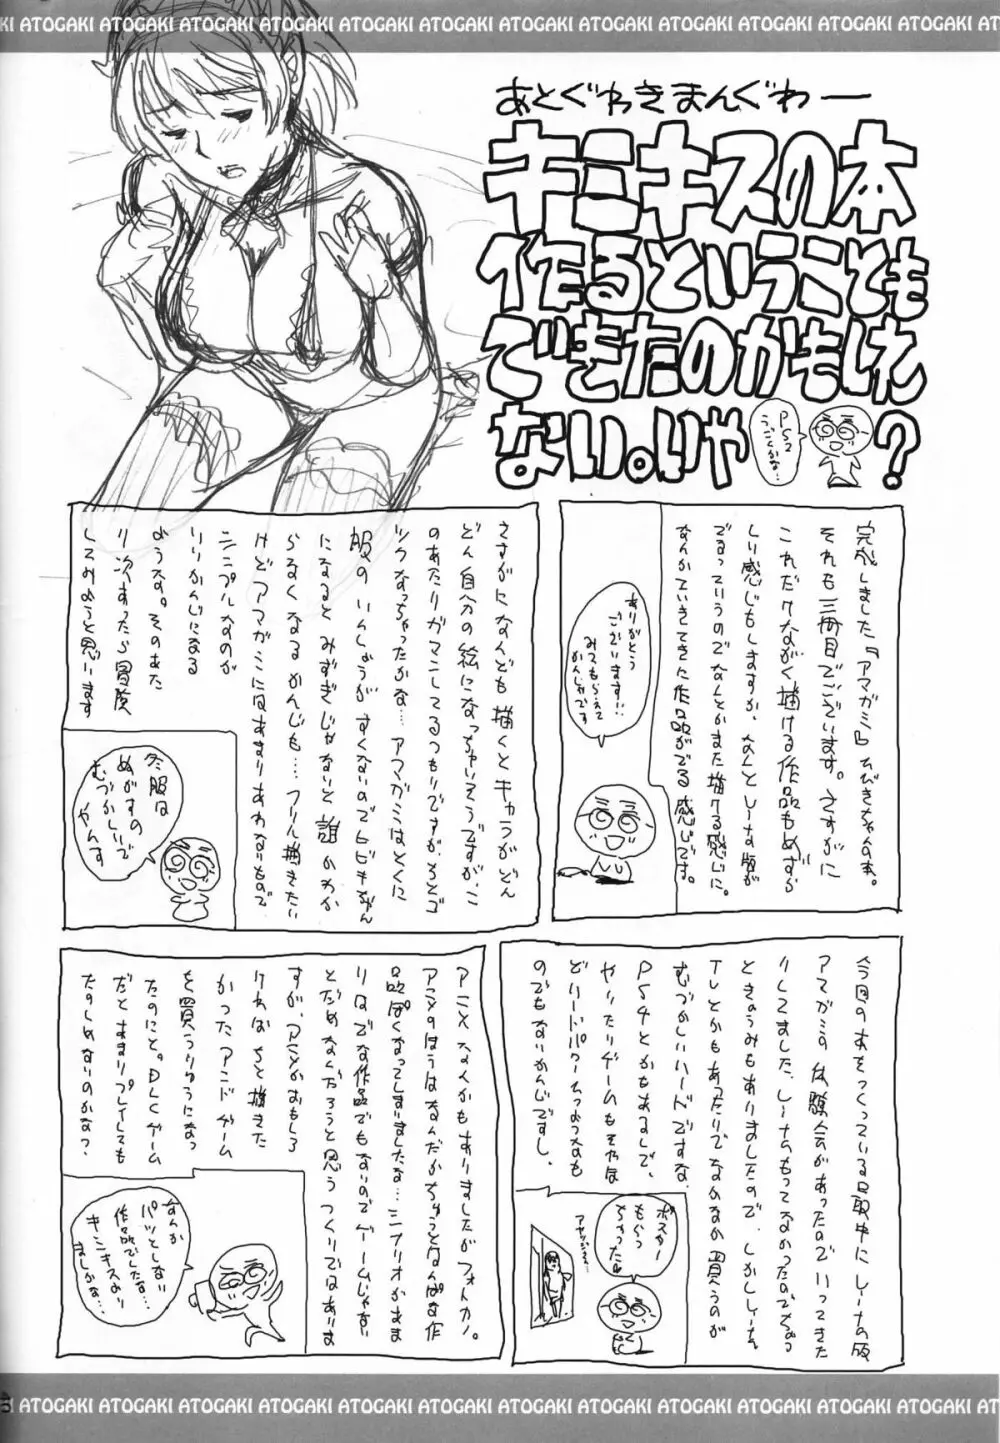 ATOGAKI ATOGAKI ATOGAKI ATOGAKI ATOGAKI ATOGAKI ATOGAKI ATOGAKI ATOGAKI ATOGAKI
あとぐゎきまんぐゎー
キミキスの本
作るということも
できたのかもしれ
ない。いや
PS2
うごくかな…
?
完成しました『アマガミ』ひびきちゃん本。
それも三冊目でございます。さすがに
これだけながく描ける作品もめずら
しい感じもしますが、なんとしーな版が
でるっていうのでなんとかまた描ける感じに。
なんかでいきてきた作品がでる感じです。
ありがとう
ございます!!
みてもらえて
かんしゃです
さすがになんども描くとキャラがどん
どん自分の絵になっちゃいそうですが、こ
のあたりガマンしてるつもりですが、ちとゴ
ツクなっちゃったかな…アマガミはとくに
服のいしょうがすくないのでヒビキちゃん
になるとみずぎじゃないと誰かわか
らなくなるかんじも…フリル描きたい
けどアマガミにはあまりあわないもので
シンプルなのが
いいかんじになる
ような。そのあた
り次あったら冒険
してみようと思います
冬服は
ぬがすの
むづかしいで
やんす
今回の本をつくっている最中にしーナの版
アマガミの体験会があったのでいってきた
りしてました、しーナんもってなかったのでちょっ
ときょうみもありましたので、しかししーナん
TVとかもあったりでなかなか買うのが
むづかしいハードですな。
PS4とかもあるしで、
やったりゲームもそれほ
どハードパワーつかうような
のでもないかんじですし、
ポスター
もらっ
ちゃったね
アニメなんかもありましたがフォトカノ。
アニメのほうはなんだかちょっとなんぱな作
品ぽくなってしまいましたな…シナリオがあま
りはでな作品でもないのでゲームじゃない
とだめなんだろうと思うつくりではありま
すが、アニメがおもしろ
ければちと描きた
かったアンドゲーム
を買うりゆうになっ
たのにと。DLCゲーム
だとあまりプレイしても
たのしめないのかな?
なんか
パッとしない
作品でしたな…
キミキスより
ましかな…
ATOGAKI ATOGAKI ATOGAKI ATOGAKI ATOGAKI ATOGAKI ATOGAKI ATOGAKI ATOGAKI ATOGAKI